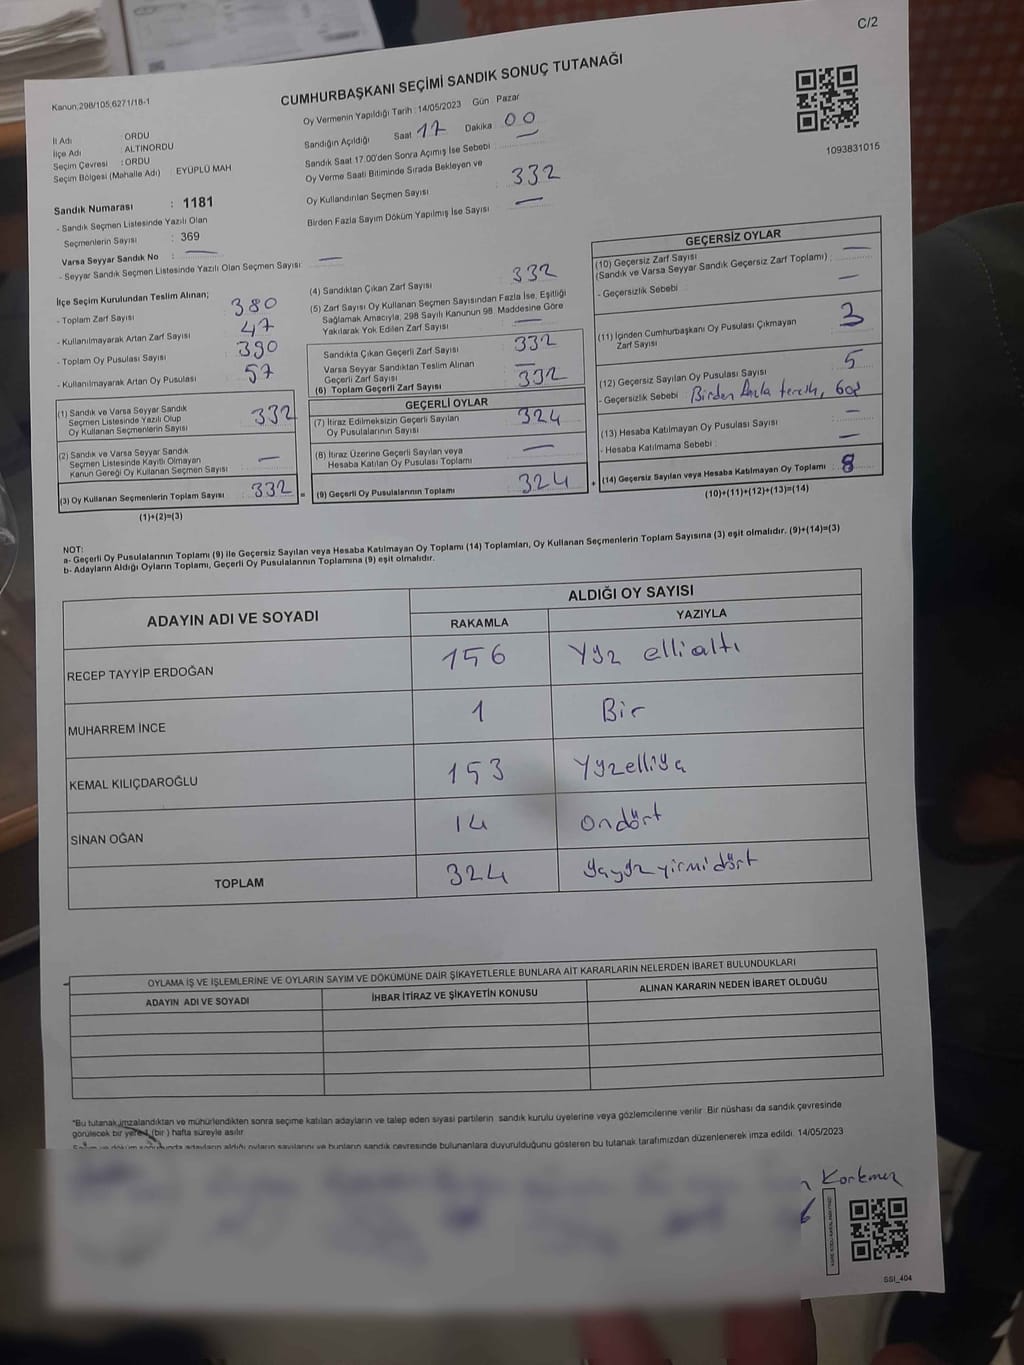 C/2
Kanun:298/105,6271/18-1
CUMHURBAŞKANI SEÇİMİ SANDIK SONUÇ TUTANAĞI
Oy Vermenin Yapıldığı Tarih : 14/05/2023 Gün Pazar
İl Adı : ORDU
İlçe Adı : ALTINORDU
Seçim Çevresi : ORDU
Seçim Bölgesi (Mahalle Adı) : EYÜPLÜ MAH
Sandık Numarası : 1181
- Sandık Seçmen Listesinde Yazılı Olan
Seçmenlerin Sayısı : 369
Varsa Seyyar Sandık No : —
- Seyyar Sandık Seçmen Listesinde Yazılı Olan Seçmen Sayısı: —
Sandığın Açıldığı Saat 17 Dakika 00
Sandık Saat 17.00'den Sonra Açımış İse Sebebi : —
Oy Verme Saati Bitiminde Sırada Bekleyen ve
Oy Kullandırılan Seçmen Sayısı : 332
Birden Fazla Sayım Döküm Yapılmış İse Sayısı : —
1093831015
İlçe Seçim Kurulundan Teslim Alınan;
- Toplam Zarf Sayısı : 380
- Kullanılmayarak Artan Zarf Sayısı : 47
- Toplam Oy Pusulası Sayısı : 390
- Kullanılmayarak Artan Oy Pusulası : 57
(1) Sandık ve Varsa Seyyar Sandık
Seçmen Listesinde Yazılı Olup
Oy Kullanan Seçmenlerin Sayısı : 332
(2) Sandık ve Varsa Seyyar Sandık
Seçmen Listesinde Kayıtlı Olmayan
Kanun Gereği Oy Kullanan Seçmen Sayısı : —
(3) Oy Kullanan Seçmenlerin Toplam Sayısı : 332 =
(1)+(2)=(3)
(4) Sandıktan Çıkan Zarf Sayısı : 332
(5) Zarf Sayısı Oy Kullanan Seçmen Sayısından Fazla İse, Eşitliği
Sağlamak Amacıyla, 298 Sayılı Kanunun 98. Maddesine Göre
Yakılarak Yok Edilen Zarf Sayısı : —
Sandıkta Çıkan Geçerli Zarf Sayısı : 332
Varsa Seyyar Sandıktan Teslim Alınan
Geçerli Zarf Sayısı : —
(6) Toplam Geçerli Zarf Sayısı : 332
GEÇERLİ OYLAR
(7) İtiraz Edilmeksizin Geçerli Sayılan
Oy Pusulalarının Sayısı : 324
(8) İtiraz Üzerine Geçerli Sayılan veya
Hesaba Katılan Oy Pusulası Toplamı : —
(9) Geçerli Oy Pusulalarının Toplamı : 324 +
GEÇERSİZ OYLAR
(10) Geçersiz Zarf Sayısı : —
(Sandık ve Varsa Seyyar Sandık Geçersiz Zarf Toplamı)
- Geçersizlik Sebebi : —
(11) İçinden Cumhurbaşkanı Oy Pusulası Çıkmayan
Zarf Sayısı : 3
(12) Geçersiz Sayılan Oy Pusulası Sayısı : 5
- Geçersizlik Sebebi : Birden fazla tercih, boş
(13) Hesaba Katılmayan Oy Pusulası Sayısı : —
- Hesaba Katılmama Sebebi : —
(14) Geçersiz Sayılan veya Hesaba Katılmayan Oy Toplamı : 8
(10)+(11)+(12)+(13)=(14)
NOT:
a- Geçerli Oy Pusulalarının Toplamı (9) ile Geçersiz Sayılan veya Hesaba Katılmayan Oy Toplamı (14) Toplamları, Oy Kullanan Seçmenlerin Toplam Sayısına (3) eşit olmalıdır. (9)+(14)=(3)
b- Adayların Aldığı Oyların Toplamı, Geçerli Oy Pusulalarının Toplamına (9) eşit olmalıdır.
ADAYIN ADI VE SOYADI
ALDIĞI OY SAYISI
RAKAMLA YAZIYLA
RECEP TAYYİP ERDOĞAN 156 Yüz ellialtı
MUHARREM İNCE 1 Bir
KEMAL KILIÇDAROĞLU 153 Yüzelliüç
SİNAN OĞAN 14 Ondört
TOPLAM 324 Üçyüzyirmidört
OYLAMA İŞ VE İŞLEMLERİNE VE OYLARIN SAYIM VE DÖKÜMÜNE DAİR ŞİKAYETLERLE BUNLARA AİT KARARLARIN NELERDEN İBARET BULUNDUKLARI
ADAYIN ADI VE SOYADI İHBAR İTİRAZ VE ŞİKAYETİN KONUSU ALINAN KARARIN NEDEN İBARET OLDUĞU
*Bu tutanak imzalandıktan ve mühürlendikten sonra seçime katılan adayların ve talep eden siyasi partilerin sandık kurulu üyelerine veya gözlemcilerine verilir. Bir nüshası da sandık çevresinde
görülecek bir yere 1 (bir ) hafta süreyle asılır.
Sayım ve döküm sonucunda adayların aldığı oyların sayılarını ve bunların sandık çevresinde bulunanlara duyurulduğunu gösteren bu tutanak tarafımızdan düzenlenerek imza edildi. 14/05/2023
Korkmaz
SSI_404